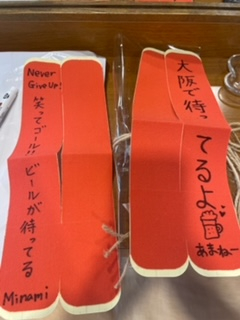 Never
Give Up!
笑ってゴール!! ビールが待ってる
Minami
大阪で待っ
てるよ
あまねー